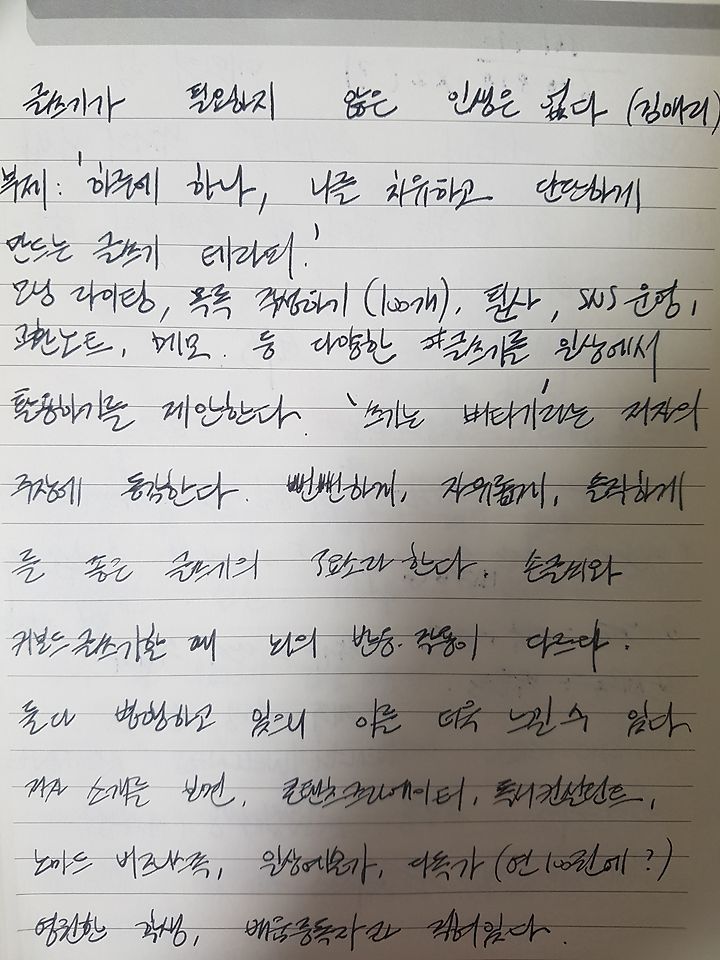 글쓰기가 필요하지 않은 인생은 없다 (김애리)
부제: '하루에 하나, 나를 치유하고 단단하게
만드는 글쓰기 테라피.'
모닝 라이팅, 목록 작성하기 (100개), 필사, SNS 운영,
교환노트, 메모. 등 다양한 글쓰기를 일상에서
활용하기를 제안한다. '쓰기는 버티기'라는 저자의
주장에 동감한다. 뻔뻔하게, 자유롭게, 솔직하게
를 좋은 글쓰기의 3요소라 한다. 손글씨와
키보드 글쓰기할 때 뇌의 반응·작동이 다르다.
둘다 병행하고 있으니 이를 더욱 느낄 수 있다.
저자 소개를 보면, 콘텐츠크리에이터, 독서컨설턴트,
노마드 비즈니스족, 일상예술가, 다독가 (연 100권에?)
영원한 학생, 배움중독자라 적혀있다.